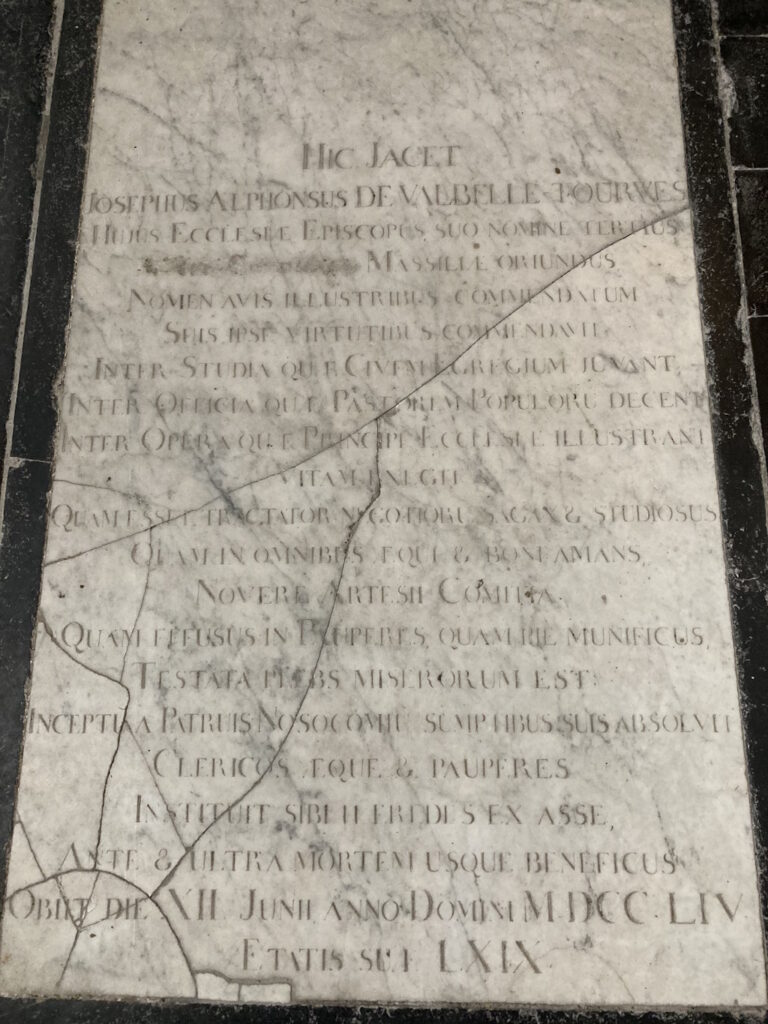 HIC JACET
JOSEPHUS ALPHONSUS DE VALBELLE-TOURVES
HUJUS ECCLESIÆ EPISCOPUS SUO NOMINE TERTIUS
MASSILIÆ ORIUNDUS
NOMEN AVIS ILLUSTRIBUS COMMENDATUM
SUIS IPSE VIRTUTIBUS COMMENDAVIT.
INTER STUDIA QUÆ CIVEM EGREGIUM JUVANT,
INTER OFFICIA QUÆ PASTOREM POPULORU DECENT
INTER OPERA QUÆ PRINCIPE ECCLESIÆ ILLUSTRANT
VITAM EXEGIT
QUAM ESSET TRACTATOR NEGOTIORU SAGAX & STUDIOSUS
QUAM IN OMNIBUS ÆQUI & BONI AMANS,
NOVERE ARTESII COMITIA.
QUAM EFFUSUS IN PAUPERES, QUAM RIE MUNIFICUS,
TESTATA PLEBS MISERORUM EST:
INCEPTUM A PATRUIS NOSOCOMIU SUMPTIBUS SUIS ABSOLVIT
CLERICOS ÆQUE & PAUPERES
INSTITUIT SIBI HÆREDES EX ASSE,
ANTE & ULTRA MORTEM USQUE BENEFICUS
OBIIT DIE XII JUNII ANNO DOMINI M.DCC.LIV
ÆTATIS SUÆ LXIX.